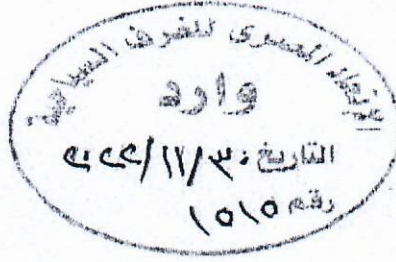 الإتحاد المصرى للغرف السياحية
وارد
التاريخ: ٢٠٢٢/١١/٣٠
رقم ١٥١٥